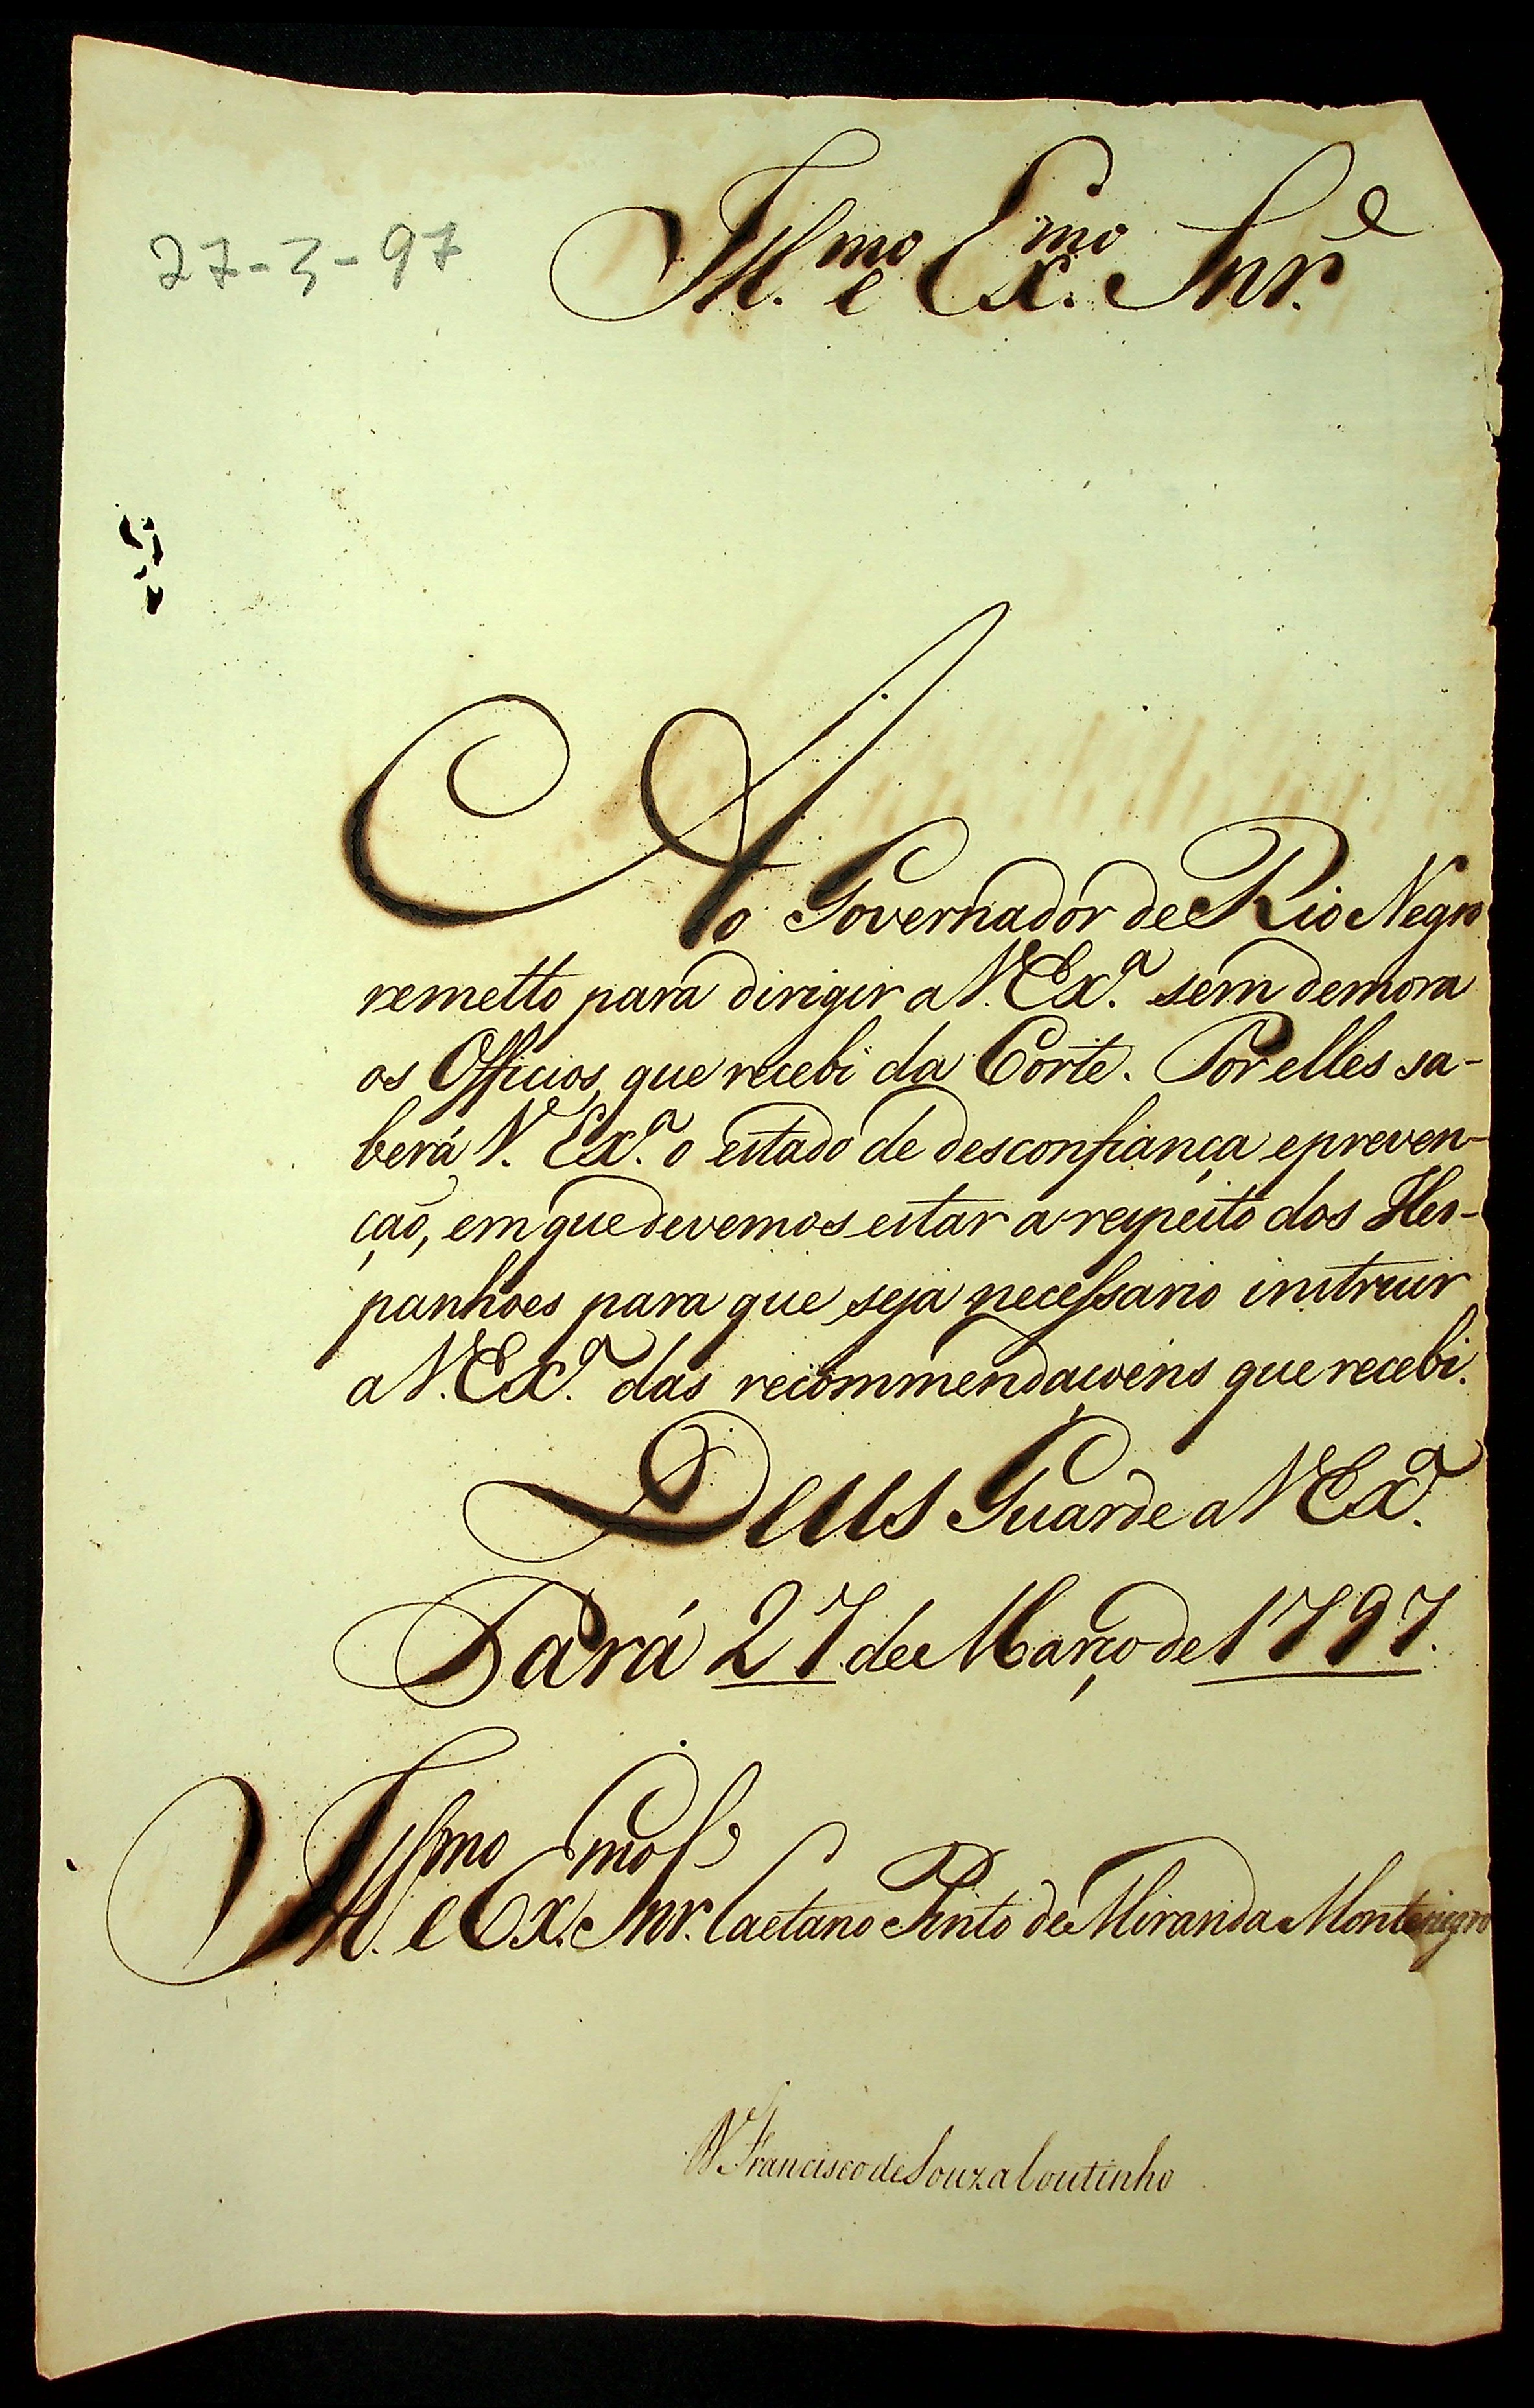 27-3-97
Ill.mo e Ex.mo Snr.e
Ao Governador de Rio Negro
remetto para dirigir a V. Ex.a sem demora
os Officios, que recebi da Corte. Por elles sa-
berá V. Ex.a o estado de desconfiança e preven-
ção, em que devemos estar a respeito dos Hes-
panhoes para que seja necessario instruir
a V. Ex.a das recommendaçoens que recebi.
Deus Guarde a V Ex.a
Pará 27 de Março de 1797.
Ill.mo e Ex.mo Snr. Caetano Pinto de Miranda Montenegro
Francisco de Souza Coutinho